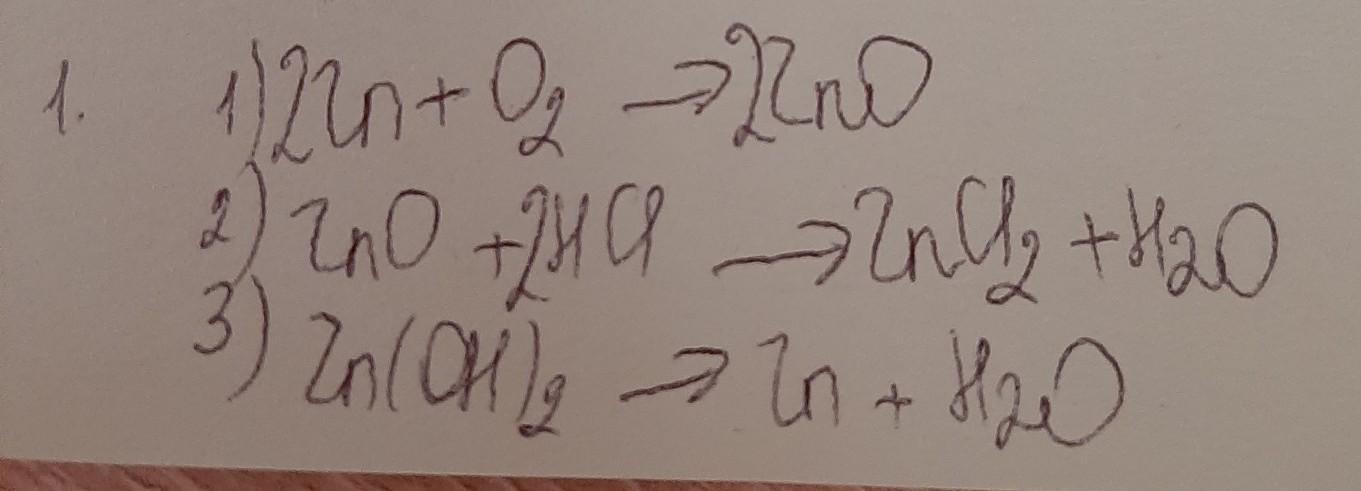 1. 1) 2Zn + O₂ → 2ZnO
2) ZnO + 2HCl → ZnCl₂ + H₂O
3) Zn(OH)₂ → Zn + H₂O